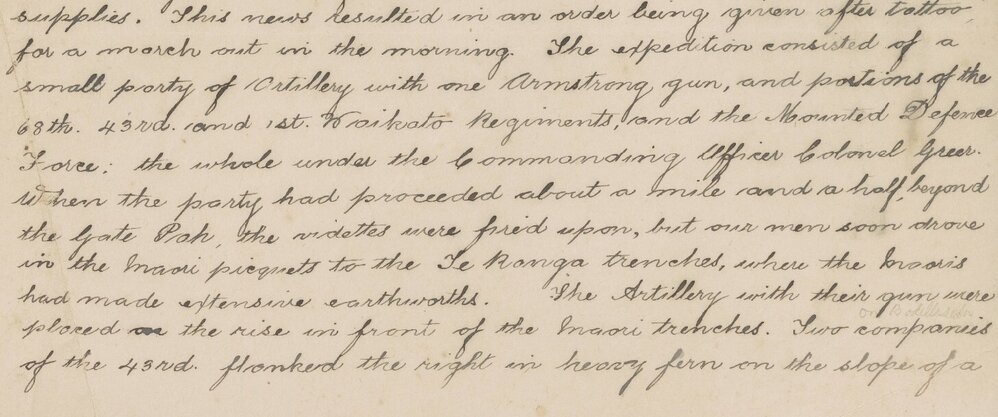 supplies. This news resulted in an order being given after tattoo,
for a march out in the morning. The expedition consisted of a
small party of Artillery with one Armstrong gun, and portions of the
68th. 43rd. and 1st. Waikato Regiments, and the Mounted Defence
Force; the whole under the Commanding Officer Colonel Greer.
When the party had proceeded about a mile and a half, beyond
the Gate Pah, the videttes were fired upon, but our men soon drove
in the Maori picquets to the Te Ranga trenches, where the Maoris
had made extensive earthworths. The Artillery with their gun were
placed on the rise in front of the Maori trenches. Two companies
of the 43rd. flanked the right in heavy fern on the slope of a